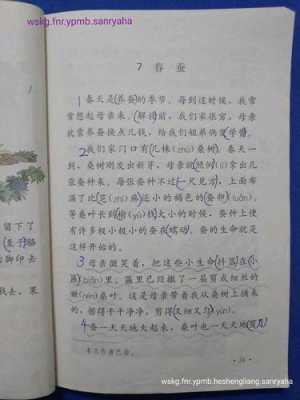 wskg.fnr.ypmb.sanryaha
7 春蚕
1 春天是(养蚕)的季节。每到这时候，我常
常想起母亲来。(解释)前，我们家很穷，母亲
就靠养蚕换点儿钱，给我们姐弟俩(学费)。
2 我们家门口有(几株)(zhū)桑树。春天一
到，桑树刚发出新芽，母亲就(照例)(lì)拿出几
张蚕种来。每张蚕种不过(一尺见方)，上面布
满了比(芝)(麻)(zhī)还小的褐色的(蚕卵)(luǎn)。
等桑叶长到(榆)(yú)钱大小的时候，蚕种上便
有许多极小极小的蚕(蠕动)。蚕的生命就是
这样开始的。
3 母亲微笑着，把这些小生命(抖落)在(小
匾)(biǎn)里。匾里已经撒了一层剪成细丝的
嫩(nèn)桑叶。这是母亲带着我从桑树上摘来
的，擦得干干净净，剪得(又细又匀)(yún)。
4 蚕一天天地大起来，桑叶也一天天地
本文作者巴金。
留下了
脚印去
我去，果
wskg.fnr.ypmb.heshengliang.sanryaha